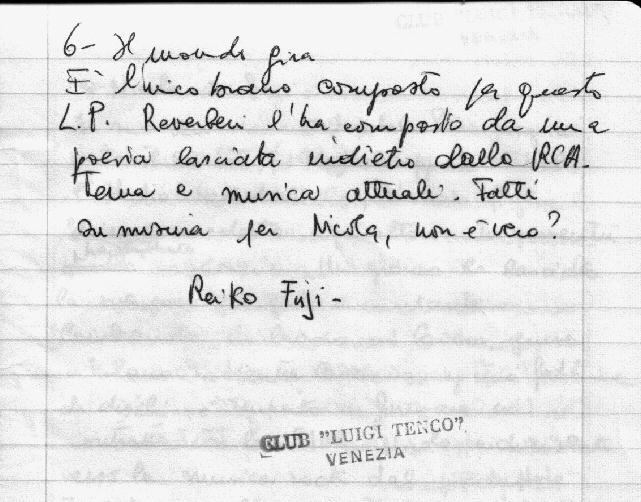 6- Il mondo gira
È l'unico brano composto per questo
L.P. Reverberi l'ha composto da una
poesia lasciata indietro dalla RCA.
Tema e musica attuali. Fatti
su misura per Nicola, non è vero?
Reiko Fuji-
CLUB "LUIGI TENCO"
VENEZIA